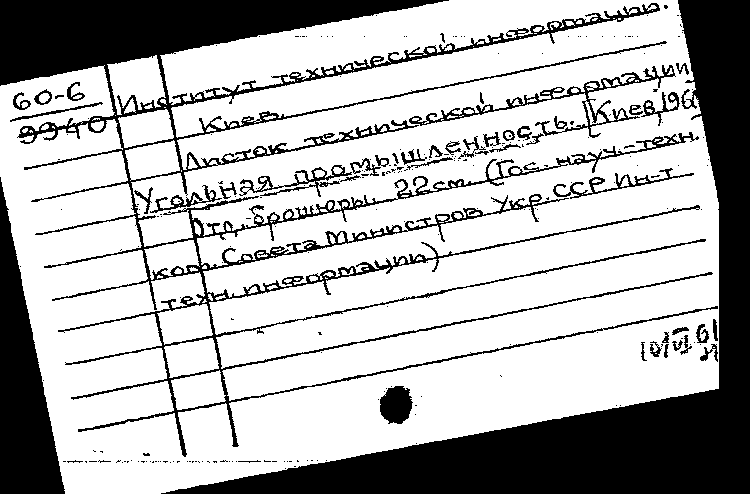 60-6
9940
Институт технической информации.
Киев.
Листок технической информации
Угольная промышленность. [Киев, 196
Отд. брошюры. 22см. (Гос. науч.-техн.
ком. Совета Министров Укр.ССР Ин-т
техн. информации)
10/VI 61